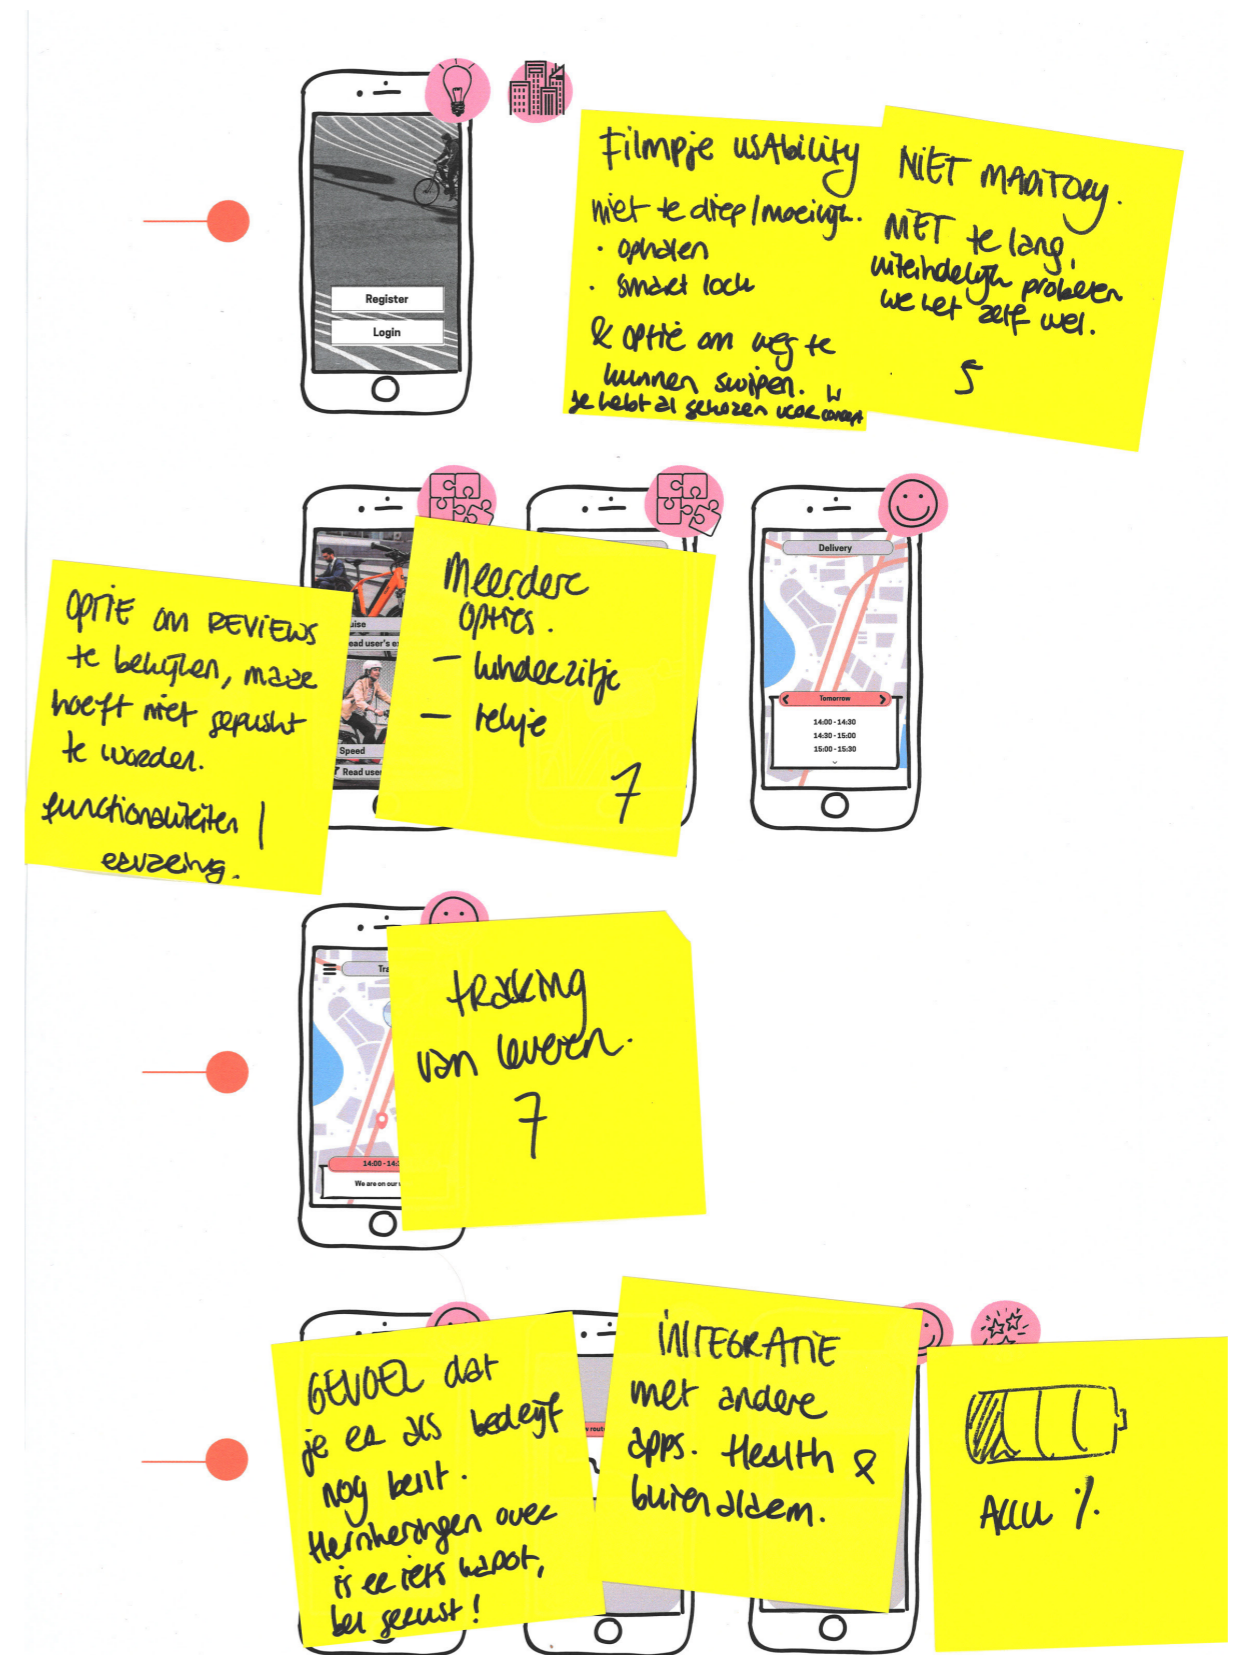 Register
Login
Filmpje usability
niet te diep/moeilijk.
· ophalen
· smart lock
& optie om weg te
kunnen swipen.
je hebt al gekozen voor concept
NIET MADITORY.
NIET te lang,
uiteindelijk proberen
we het zelf wel.
5
OPTIE om REVIEWS
te bekijken, maar
hoeft niet gepusht
te worden.
functionaliteiten |
ervaring.
uise
ead user's ex
Speed
Read user
Meerdere
opties.
- kinderzitje
- rekje
7
Delivery
Tomorrow
14:00 - 14:30
14:30 - 15:00
15:00 - 15:30
Tra
14:00 - 14:
We are on our
tracking
van leveren.
7
GEVOEL dat
je er als bedrijf
nog bent.
Herinneringen over
is er iets kapot,
bel gerust!
w route
INTEGRATIE
met andere
apps. Health &
buienalarm.
Accu %